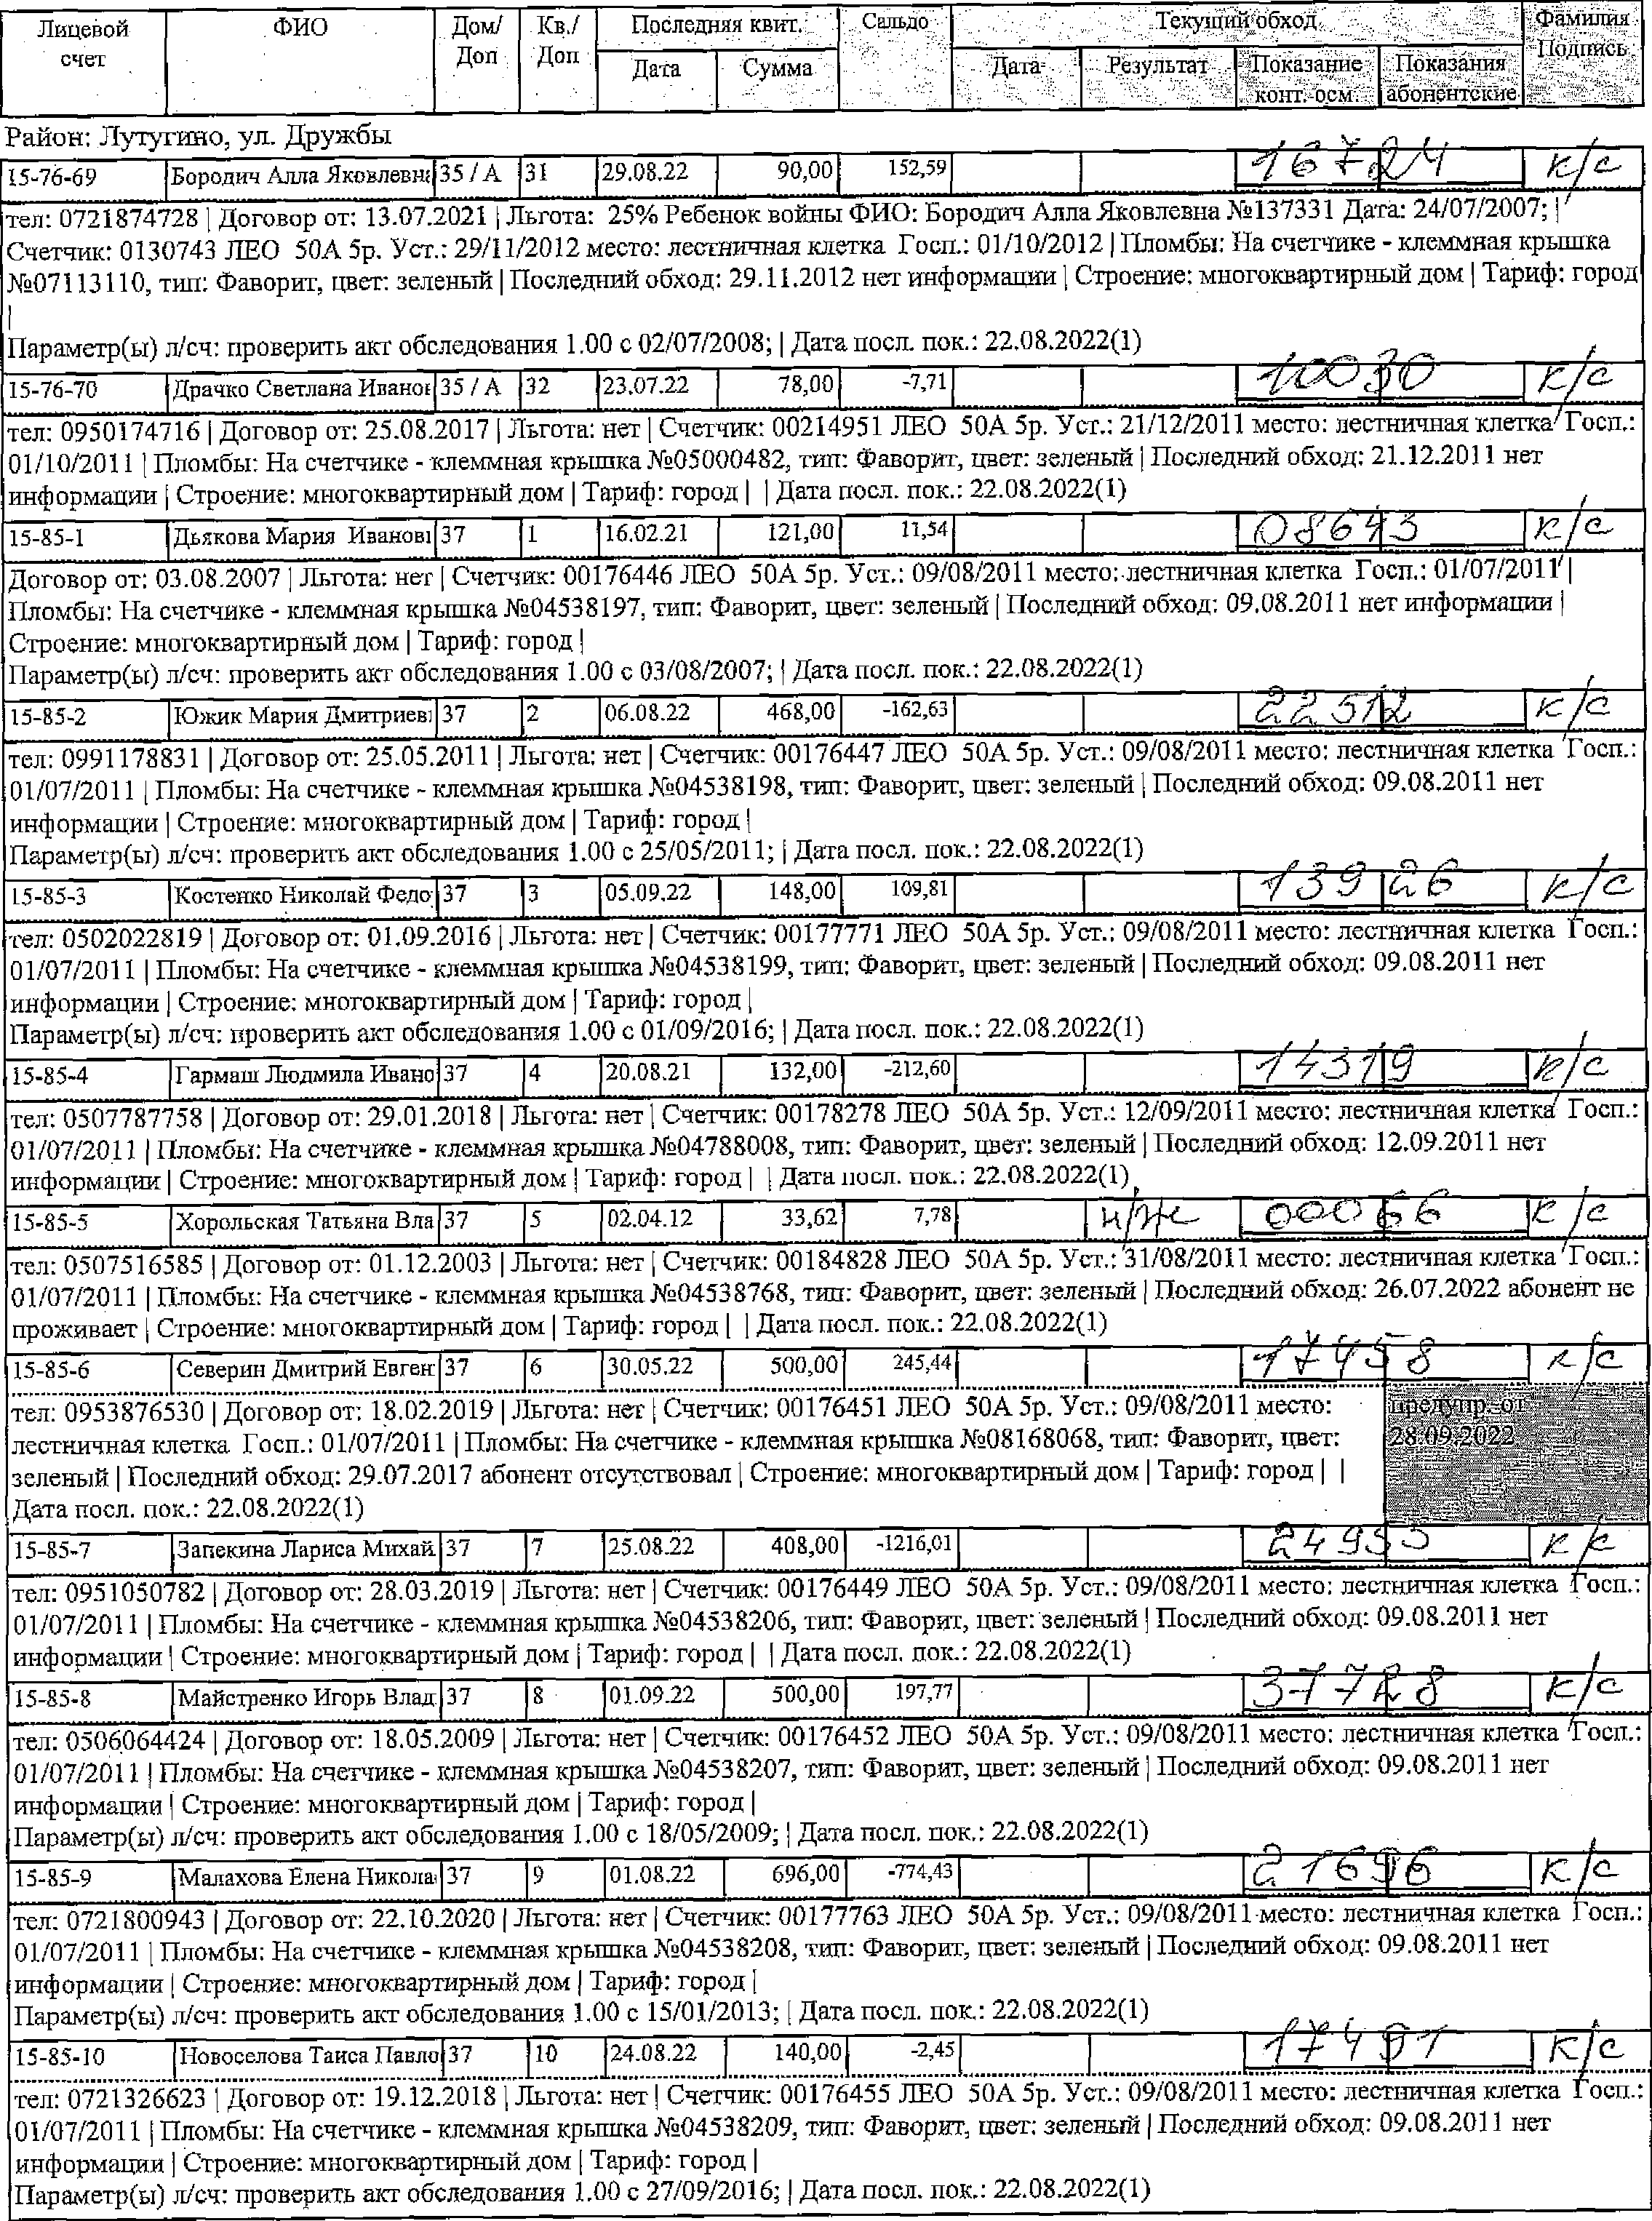 Лицевой счет | ФИО | Дом/ Доп | Кв./ Доп | Последняя квит. Дата | Сумма | Сальдо | Текущий обход Дата | Результат | Показание конт. осм. | Показания абонентские | Фамилия Подпись
Район: Лутугино, ул. Дружбы
15-76-69 Бородич Алла Яковлевна 35 / А 31 29.08.22 90,00 152,59 16724 к/с
тел: 0721874728 | Договор от: 13.07.2021 | Льгота: 25% Ребенок войны ФИО: Бородич Алла Яковлевна №137331 Дата: 24/07/2007; |
Счетчик: 0130743 ЛЕО 50А 5р. Уст.: 29/11/2012 место: лестничная клетка Госп.: 01/10/2012 | Пломбы: На счетчике - клеммная крышка
№07113110, тип: Фаворит, цвет: зеленый | Последний обход: 29.11.2012 нет информации | Строение: многоквартирный дом | Тариф: город
|
Параметр(ы) л/сч: проверить акт обследования 1.00 с 02/07/2008; | Дата посл. пок.: 22.08.2022(1)
15-76-70 Драчко Светлана Иванов 35 / А 32 23.07.22 78,00 -7,71 10030 к/с
тел: 0950174716 | Договор от: 25.08.2017 | Льгота: нет | Счетчик: 00214951 ЛЕО 50А 5р. Уст.: 21/12/2011 место: лестничная клетка Госп.:
01/10/2011 | Пломбы: На счетчике - клеммная крышка №05000482, тип: Фаворит, цвет: зеленый | Последний обход: 21.12.2011 нет
информации | Строение: многоквартирный дом | Тариф: город | | Дата посл. пок.: 22.08.2022(1)
15-85-1 Дьякова Мария Иванов 37 1 16.02.21 121,00 11,54 08643 к/с
Договор от: 03.08.2007 | Льгота: нет | Счетчик: 00176446 ЛЕО 50А 5р. Уст.: 09/08/2011 место: лестничная клетка Госп.: 01/07/2011 |
Пломбы: На счетчике - клеммная крышка №04538197, тип: Фаворит, цвет: зеленый | Последний обход: 09.08.2011 нет информации |
Строение: многоквартирный дом | Тариф: город |
Параметр(ы) л/сч: проверить акт обследования 1.00 с 03/08/2007; | Дата посл. пок.: 22.08.2022(1)
15-85-2 Южик Мария Дмитриев 37 2 06.08.22 468,00 -162,63 22512 к/с
тел: 0991178831 | Договор от: 25.05.2011 | Льгота: нет | Счетчик: 00176447 ЛЕО 50А 5р. Уст.: 09/08/2011 место: лестничная клетка Госп.:
01/07/2011 | Пломбы: На счетчике - клеммная крышка №04538198, тип: Фаворит, цвет: зеленый | Последний обход: 09.08.2011 нет
информации | Строение: многоквартирный дом | Тариф: город |
Параметр(ы) л/сч: проверить акт обследования 1.00 с 25/05/2011; | Дата посл. пок.: 22.08.2022(1)
15-85-3 Костенко Николай Федо 37 3 05.09.22 148,00 109,81 13926 к/с
тел: 0502022819 | Договор от: 01.09.2016 | Льгота: нет | Счетчик: 00177771 ЛЕО 50А 5р. Уст.: 09/08/2011 место: лестничная клетка Госп.:
01/07/2011 | Пломбы: На счетчике - клеммная крышка №04538199, тип: Фаворит, цвет: зеленый | Последний обход: 09.08.2011 нет
информации | Строение: многоквартирный дом | Тариф: город |
Параметр(ы) л/сч: проверить акт обследования 1.00 с 01/09/2016; | Дата посл. пок.: 22.08.2022(1)
15-85-4 Гармаш Людмила Ивано 37 4 20.08.21 132,00 -212,60 14319 к/с
тел: 0507787758 | Договор от: 29.01.2018 | Льгота: нет | Счетчик: 00178278 ЛЕО 50А 5р. Уст.: 12/09/2011 место: лестничная клетка Госп.:
01/07/2011 | Пломбы: На счетчике - клеммная крышка №04788008, тип: Фаворит, цвет: зеленый | Последний обход: 12.09.2011 нет
информации | Строение: многоквартирный дом | Тариф: город | | Дата посл. пок.: 22.08.2022(1)
15-85-5 Хорольская Татьяна Вла 37 5 02.04.12 33,62 7,78 н/ж 00066 к/с
тел: 0507516585 | Договор от: 01.12.2003 | Льгота: нет | Счетчик: 00184828 ЛЕО 50А 5р. Уст.: 31/08/2011 место: лестничная клетка Госп.:
01/07/2011 | Пломбы: На счетчике - клеммная крышка №04538768, тип: Фаворит, цвет: зеленый | Последний обход: 26.07.2022 абонент не
проживает | Строение: многоквартирный дом | Тариф: город | | Дата посл. пок.: 22.08.2022(1)
15-85-6 Северин Дмитрий Евген 37 6 30.05.22 500,00 245,44 17458 к/с
тел: 0953876530 | Договор от: 18.02.2019 | Льгота: нет | Счетчик: 00176451 ЛЕО 50А 5р. Уст.: 09/08/2011 место:
лестничная клетка Госп.: 01/07/2011 | Пломбы: На счетчике - клеммная крышка №08168068, тип: Фаворит, цвет:
зеленый | Последний обход: 29.07.2017 абонент отсутствовал | Строение: многоквартирный дом | Тариф: город | |
Дата посл. пок.: 22.08.2022(1)
предупр. от
28.09.2022
15-85-7 Запекина Лариса Михай 37 7 25.08.22 408,00 -1216,01 24953 к/с
тел: 0951050782 | Договор от: 28.03.2019 | Льгота: нет | Счетчик: 00176449 ЛЕО 50А 5р. Уст.: 09/08/2011 место: лестничная клетка Госп.:
01/07/2011 | Пломбы: На счетчике - клеммная крышка №04538206, тип: Фаворит, цвет: зеленый | Последний обход: 09.08.2011 нет
информации | Строение: многоквартирный дом | Тариф: город | | Дата посл. пок.: 22.08.2022(1)
15-85-8 Майстренко Игорь Влад 37 8 01.09.22 500,00 197,77 37728 к/с
тел: 0506064424 | Договор от: 18.05.2009 | Льгота: нет | Счетчик: 00176452 ЛЕО 50А 5р. Уст.: 09/08/2011 место: лестничная клетка Госп.:
01/07/2011 | Пломбы: На счетчике - клеммная крышка №04538207, тип: Фаворит, цвет: зеленый | Последний обход: 09.08.2011 нет
информации | Строение: многоквартирный дом | Тариф: город |
Параметр(ы) л/сч: проверить акт обследования 1.00 с 18/05/2009; | Дата посл. пок.: 22.08.2022(1)
15-85-9 Малахова Елена Никола 37 9 01.08.22 696,00 -774,43 21696 к/с
тел: 0721800943 | Договор от: 22.10.2020 | Льгота: нет | Счетчик: 00177763 ЛЕО 50А 5р. Уст.: 09/08/2011 место: лестничная клетка Госп.:
01/07/2011 | Пломбы: На счетчике - клеммная крышка №04538208, тип: Фаворит, цвет: зеленый | Последний обход: 09.08.2011 нет
информации | Строение: многоквартирный дом | Тариф: город |
Параметр(ы) л/сч: проверить акт обследования 1.00 с 15/01/2013; | Дата посл. пок.: 22.08.2022(1)
15-85-10 Новоселова Таиса Павло 37 10 24.08.22 140,00 -2,45 к/с
тел: 0721326623 | Договор от: 19.12.2018 | Льгота: нет | Счетчик: 00176455 ЛЕО 50А 5р. Уст.: 09/08/2011 место: лестничная клетка Госп.:
01/07/2011 | Пломбы: На счетчике - клеммная крышка №04538209, тип: Фаворит, цвет: зеленый | Последний обход: 09.08.2011 нет
информации | Строение: многоквартирный дом | Тариф: город |
Параметр(ы) л/сч: проверить акт обследования 1.00 с 27/09/2016; | Дата посл. пок.: 22.08.2022(1)